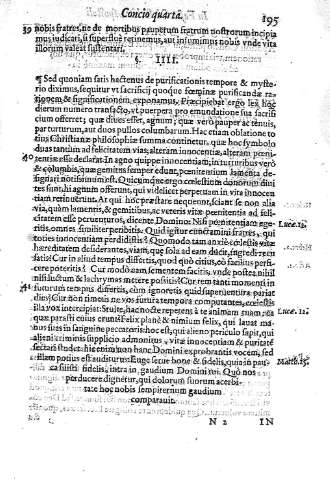 Concio quarta. 195
39 nobis fratres, ne de mortibus pauperum fratrum nostrorum incipia
mus iudicari, si superfluè retinemus, aut insumimus nobis vnde vita
illorum valeat sustentari.
§ IIII.
¶ Sed quoniam satis hactenus de purificationis tempore & myste
rio diximus, sequitur vt sacrificij quoque fœminæ purificandæ ra-
tionem & significationem exponamus. Præcipiebat ergo lex hoc
dierum numero transacto, vt puerpera pro emundatione sua sacrifi
cium offerret; quæ diues esset, agnum; quæ verò pauper ac tenuis,
par turturum, aut duos pullos columbarum. Hac etiam oblatione to
tius Christianæ philosophiæ summa continetur, quæ hoc symbolo
duas tantùm ad felicitatem vias, alteram innocentiæ, alteram pœni-
40 tentiæ esse declarat. In agno quippe innocentiam, in turturibus verò
& columbis, quæ gemitus semper edunt, pœnitentium lamenta de-
signari notissimum est. Quicunque ergo cœlestium donorum diui
tes sunt, hi agnum offerunt, qui videlicet perpetuam in vita innocen
tiam retinuerunt. At qui hoc præstare nequeunt, sciant se non alia
via, quàm lamentis, & gemitibus, ac veteris vitæ pœnitentia ad feli-
citatem esse peruenturos, dicente Domino: Nisi pœnitentiam ege- Luce.13.
ritis, omnes similiter peribitis. Quid igitur cunctamini fratres, qui
toties innocentiam perdidistis? Quomodo tam anxiè cœlestis vitæ
hæreditatem desiderantes, viam, quæ sola ad eam ducit, ingredi ren
tatis? Cur in aliud tempus differtis, quod quò citius, eò facilius perfi-
cere poteritis? Cur modò eam sementem facitis, vnde postea nihil
nisi luctum & lachrymas metere possitis? Cur rem tanti momenti in
41 futurum tempus differtis, cùm ignoretis quid superuentura pariat
dies? Cur non timetis ne vos futura tempora computantes, cœlestis
illa vox intercipiat: Stulte, hac nocte repetent à te animam tuam, Luce. 12.
quæ parasti cuius erunt? Felix planè & nimium felix, qui lauat ma-
nus suas in sanguine peccatoris: hoc est, qui alieno periculo sapit, qui
alieni criminis supplicio admonitus, vitæ innocentiam & puritatē
sectari studet: hic enim non hanc Domini exprobrantis vocem, sed
illam potius est auditurus: Euge serue bone & fidelis, quia in pau- Matth.25.
ca fuisti fidelis, intra in gaudium Domini tui. Quò nos
perducere dignetur, qui dolorum suorum acerbi-
tate hoc nobis sempiternum gaudium
comparauit.
N 2 IN